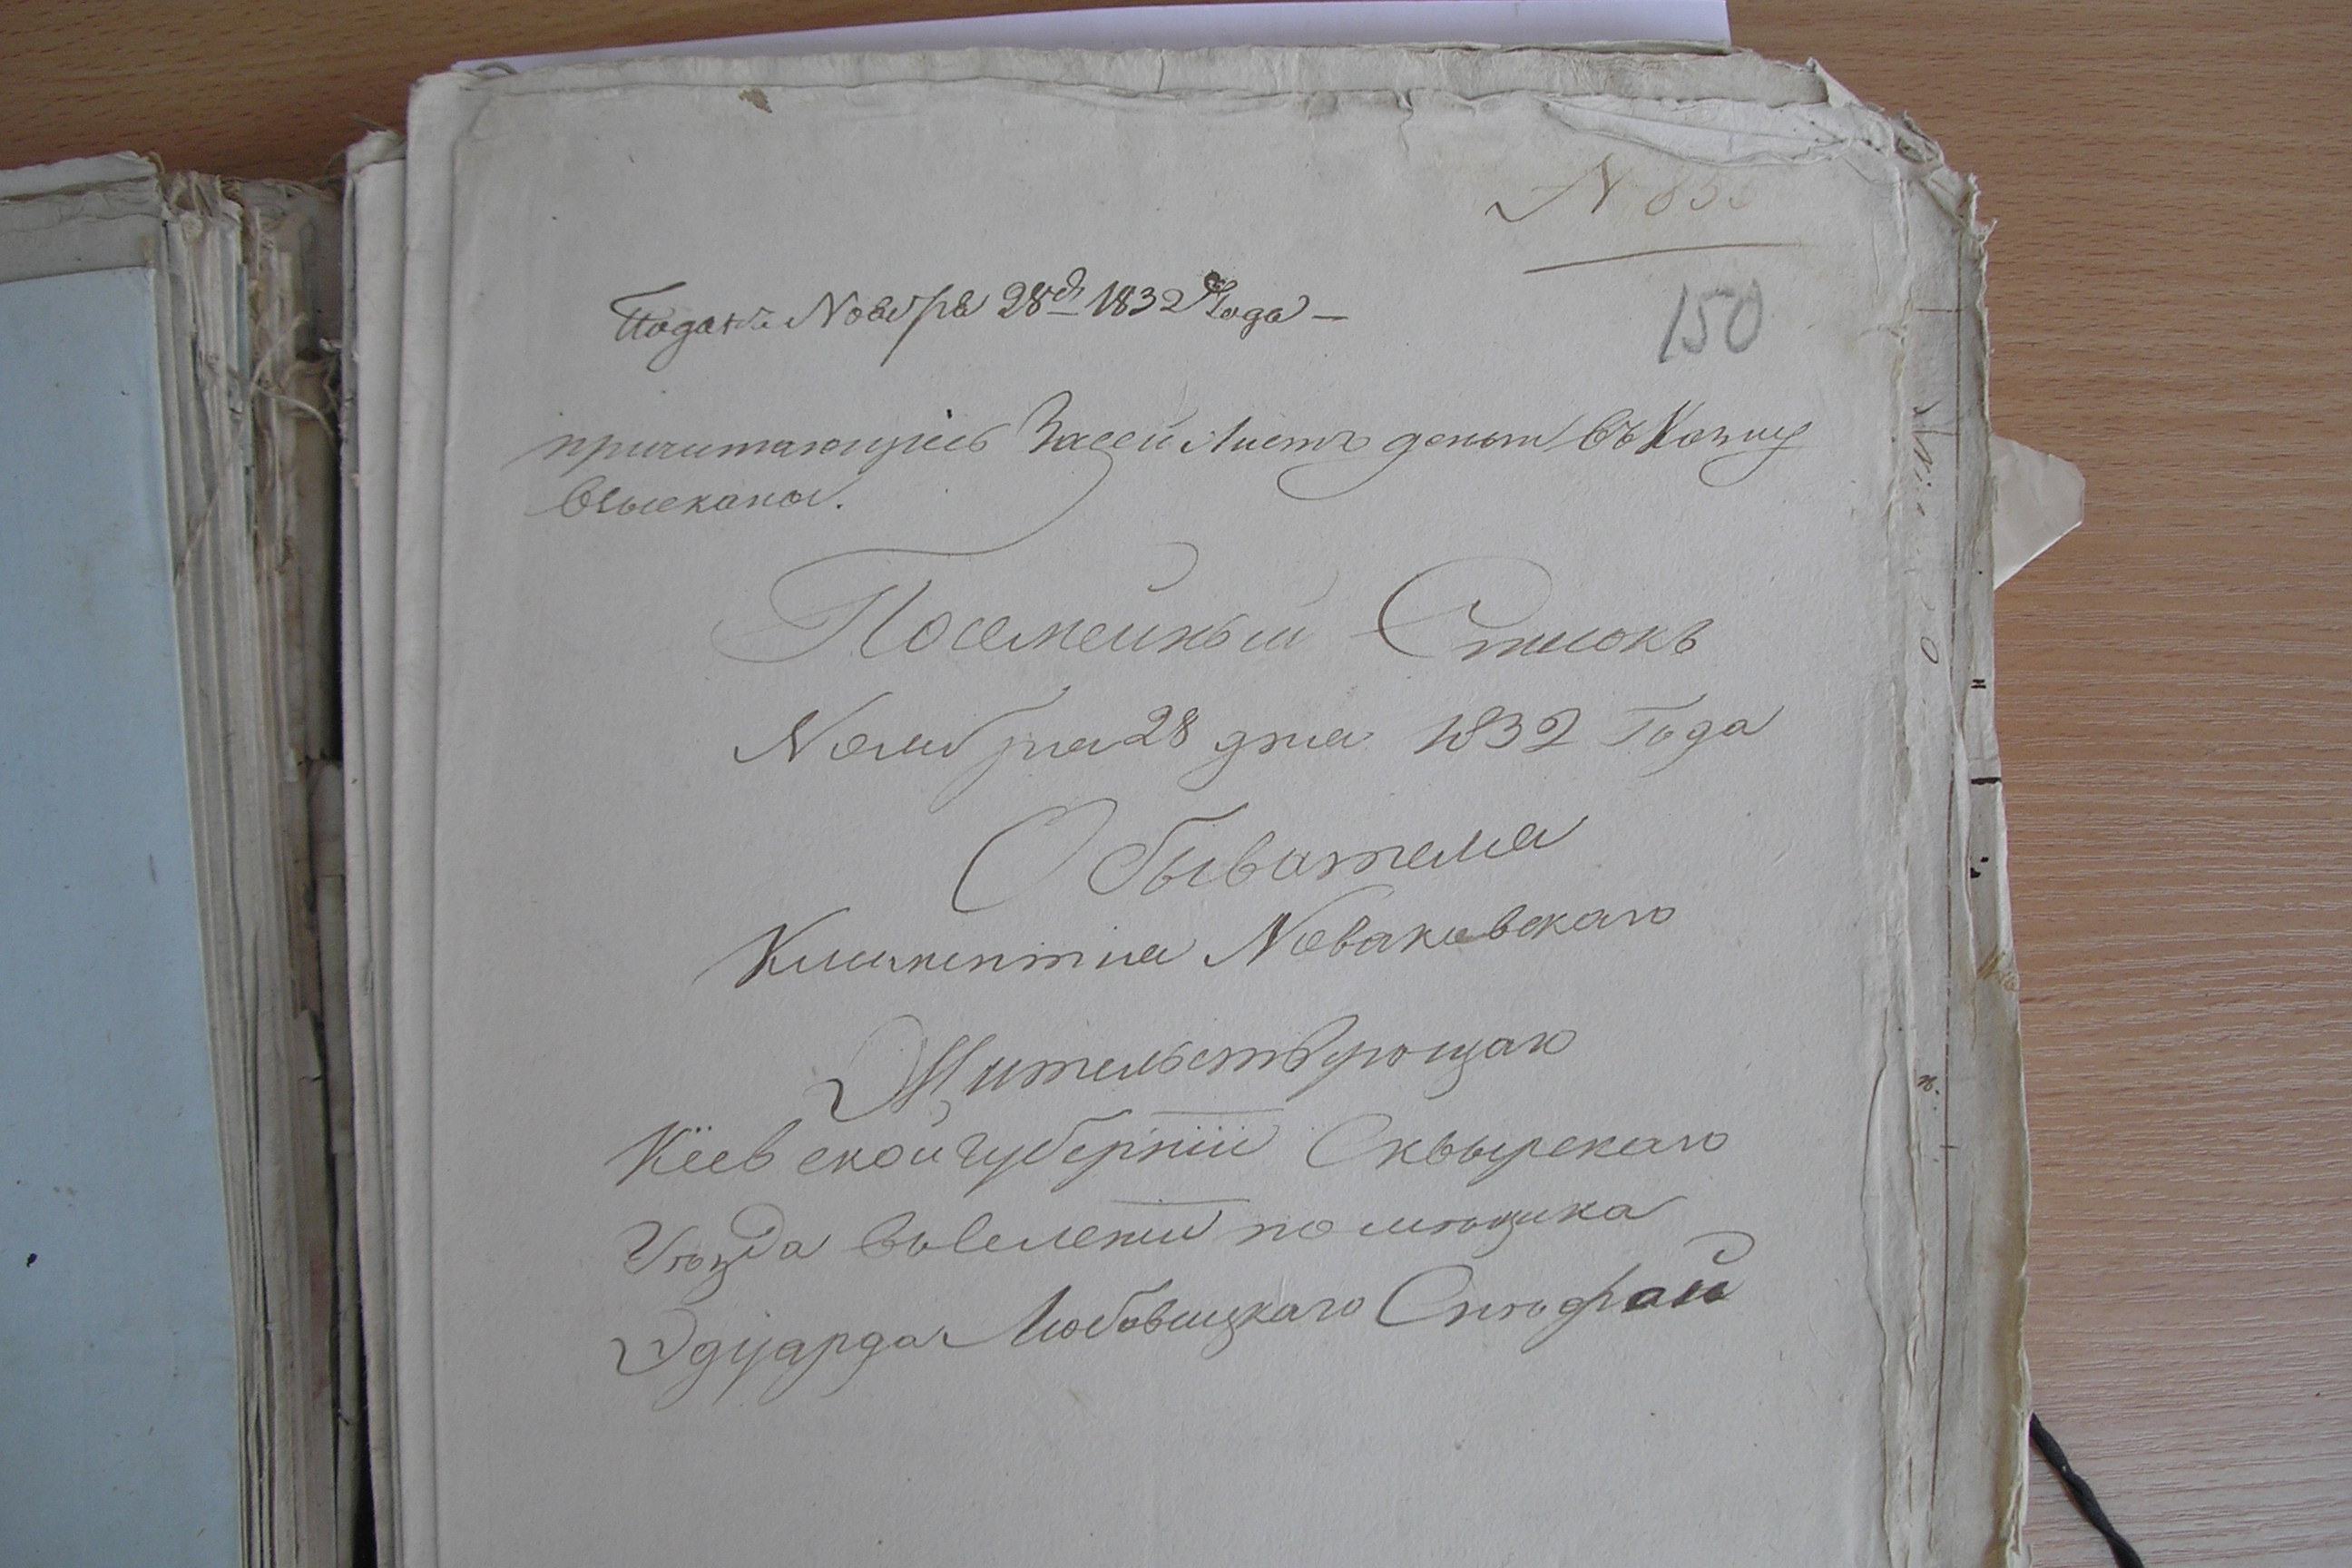 N 85
150
Подана Ноября 28 д 1832 Года —
причитающіесь За сей Листъ деньги въ Казну
взысканы.
Посемейный Списокъ
Ноября 28 дня 1832 Года
Обывателя
Климентия Новаковскаго
Жительствующаго
Кіевской губерніи Сквырскаго
Уѣзда въ селеніи помѣщика
Эдуарда Любовицкаго